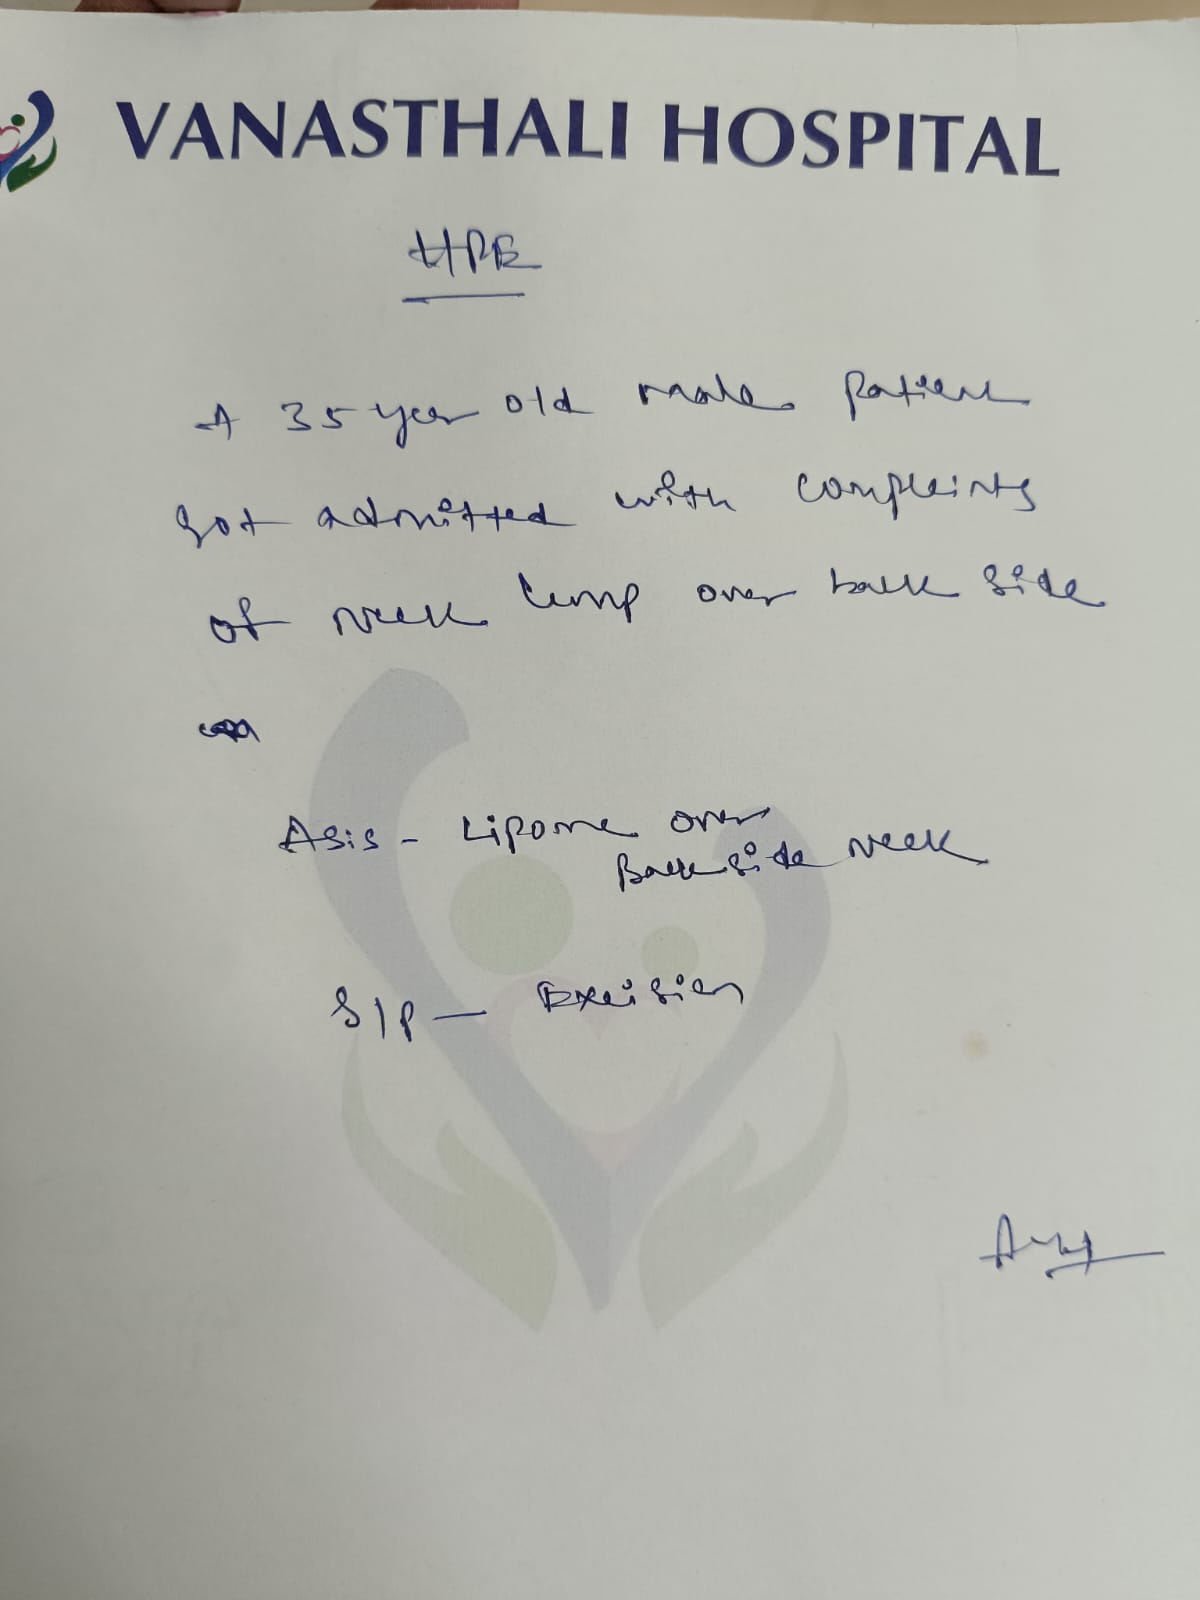 VANASTHALI HOSPITAL
HPE
A 35 year old male patient
got admitted with complaints
of neck lump over back side
Asis - Lipoma over
Back side neck
S/P - Excision